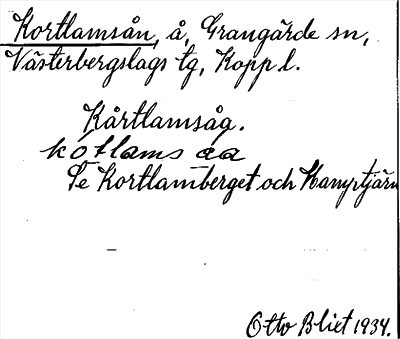 Kortlamsån, å, Grangärde sn,
Västerbergslags tg, Kopp. l.
Kårtlamsåg.
kótlams áa
Se Kortlamberget och Hamptjärn
Otto Blixt 1934.